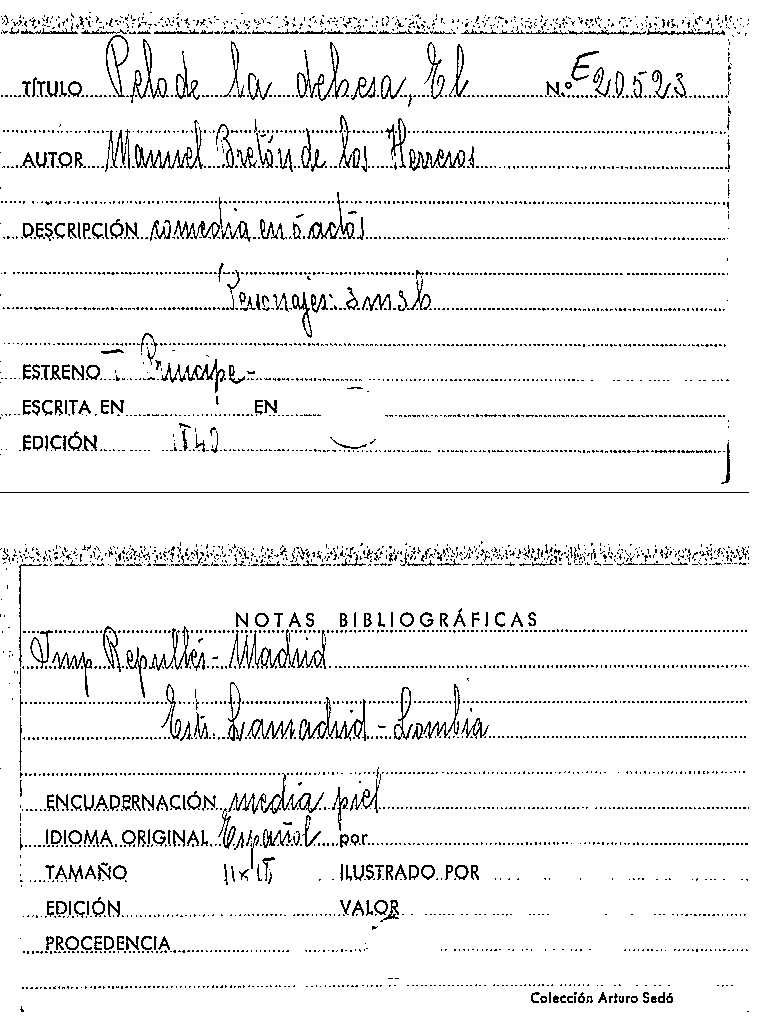 TÍTULO Pelo de la dehesa, El N.º E 20523
AUTOR Manuel Bretón de los Herreros
DESCRIPCIÓN comedia en 5 actos
Personajes: 3m3h
ESTRENO T. Principe-
ESCRITA EN EN
EDICIÓN 1840
NOTAS BIBLIOGRÁFICAS
Imp. Repullés - Madrid
Estr. Lamadrid - Lombia
ENCUADERNACIÓN media piel
IDIOMA ORIGINAL Español por
TAMAÑO ILUSTRADO POR
EDICIÓN VALOR
PROCEDENCIA
Colección Arturo Sedó